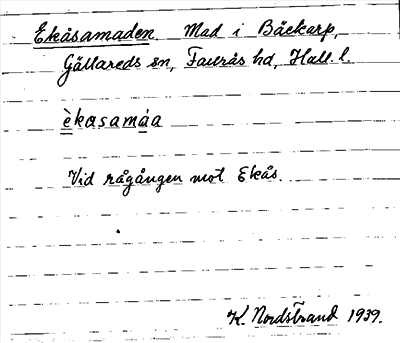 Ekåsamaden. Mad i Bäckarp,
Gällareds sn, Faurås hd, Hall. l.
èkasamáa
Vid rågången mot Ekås.
K. Nordstrand 1939.